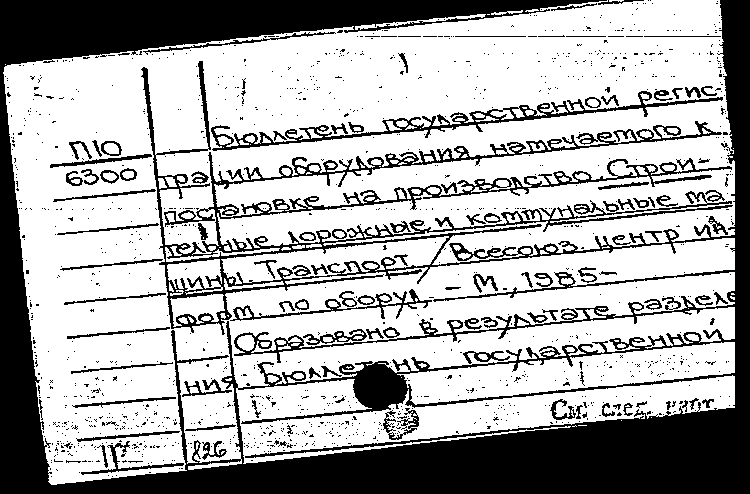 Бюллетень государственной регис-
П10
6300
трации оборудования, намечаемого к
постановке на производство. Строи-
тельные, дорожные и коммунальные ма
шины. Транспорт / Всесоюз. центр ин-
форм. по оборуд. – М., 1985–
Образовано в результате разделе
ния. Бюллетень государственной
См. след. карт.
826